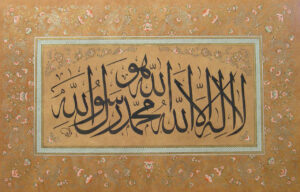 هو
لا اله الا الله محمد رسول الله